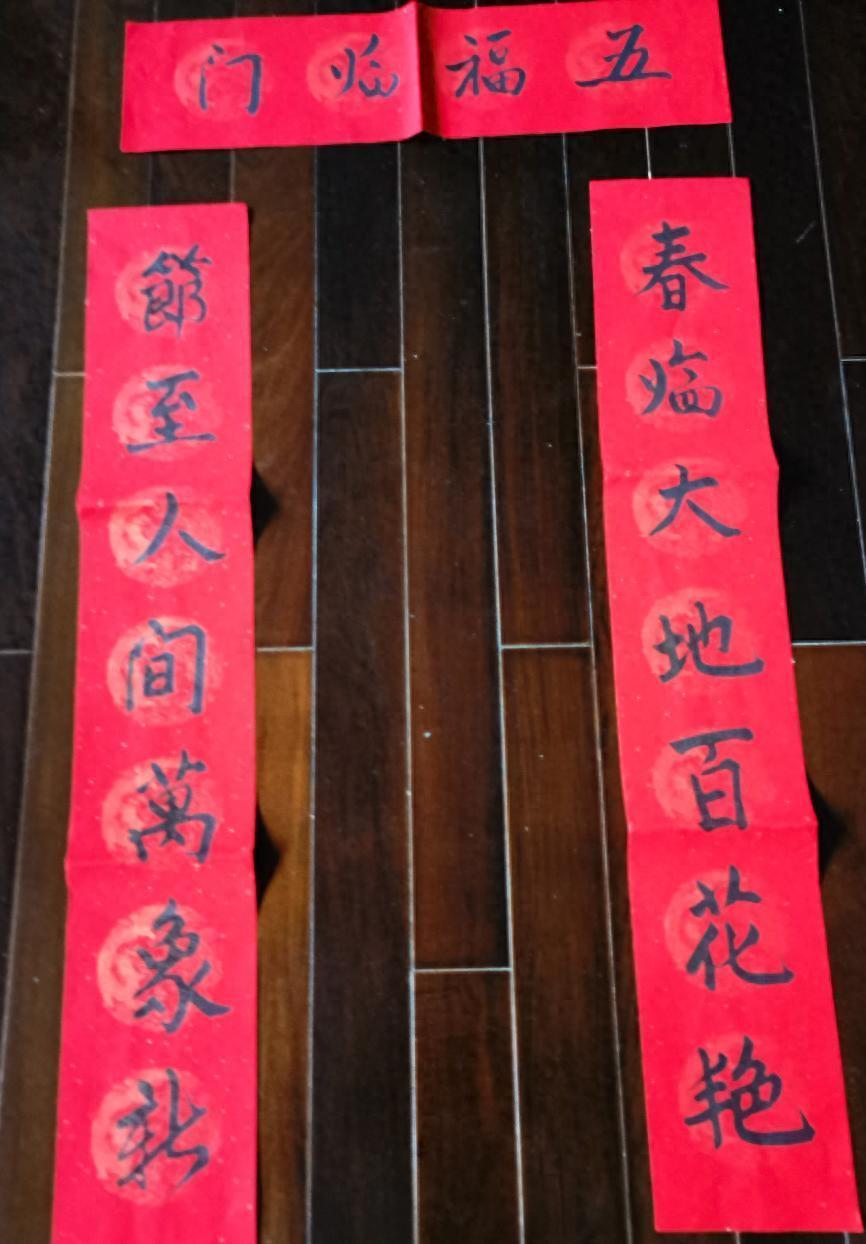 五福临门
春临大地百花艳
節至人间萬象新